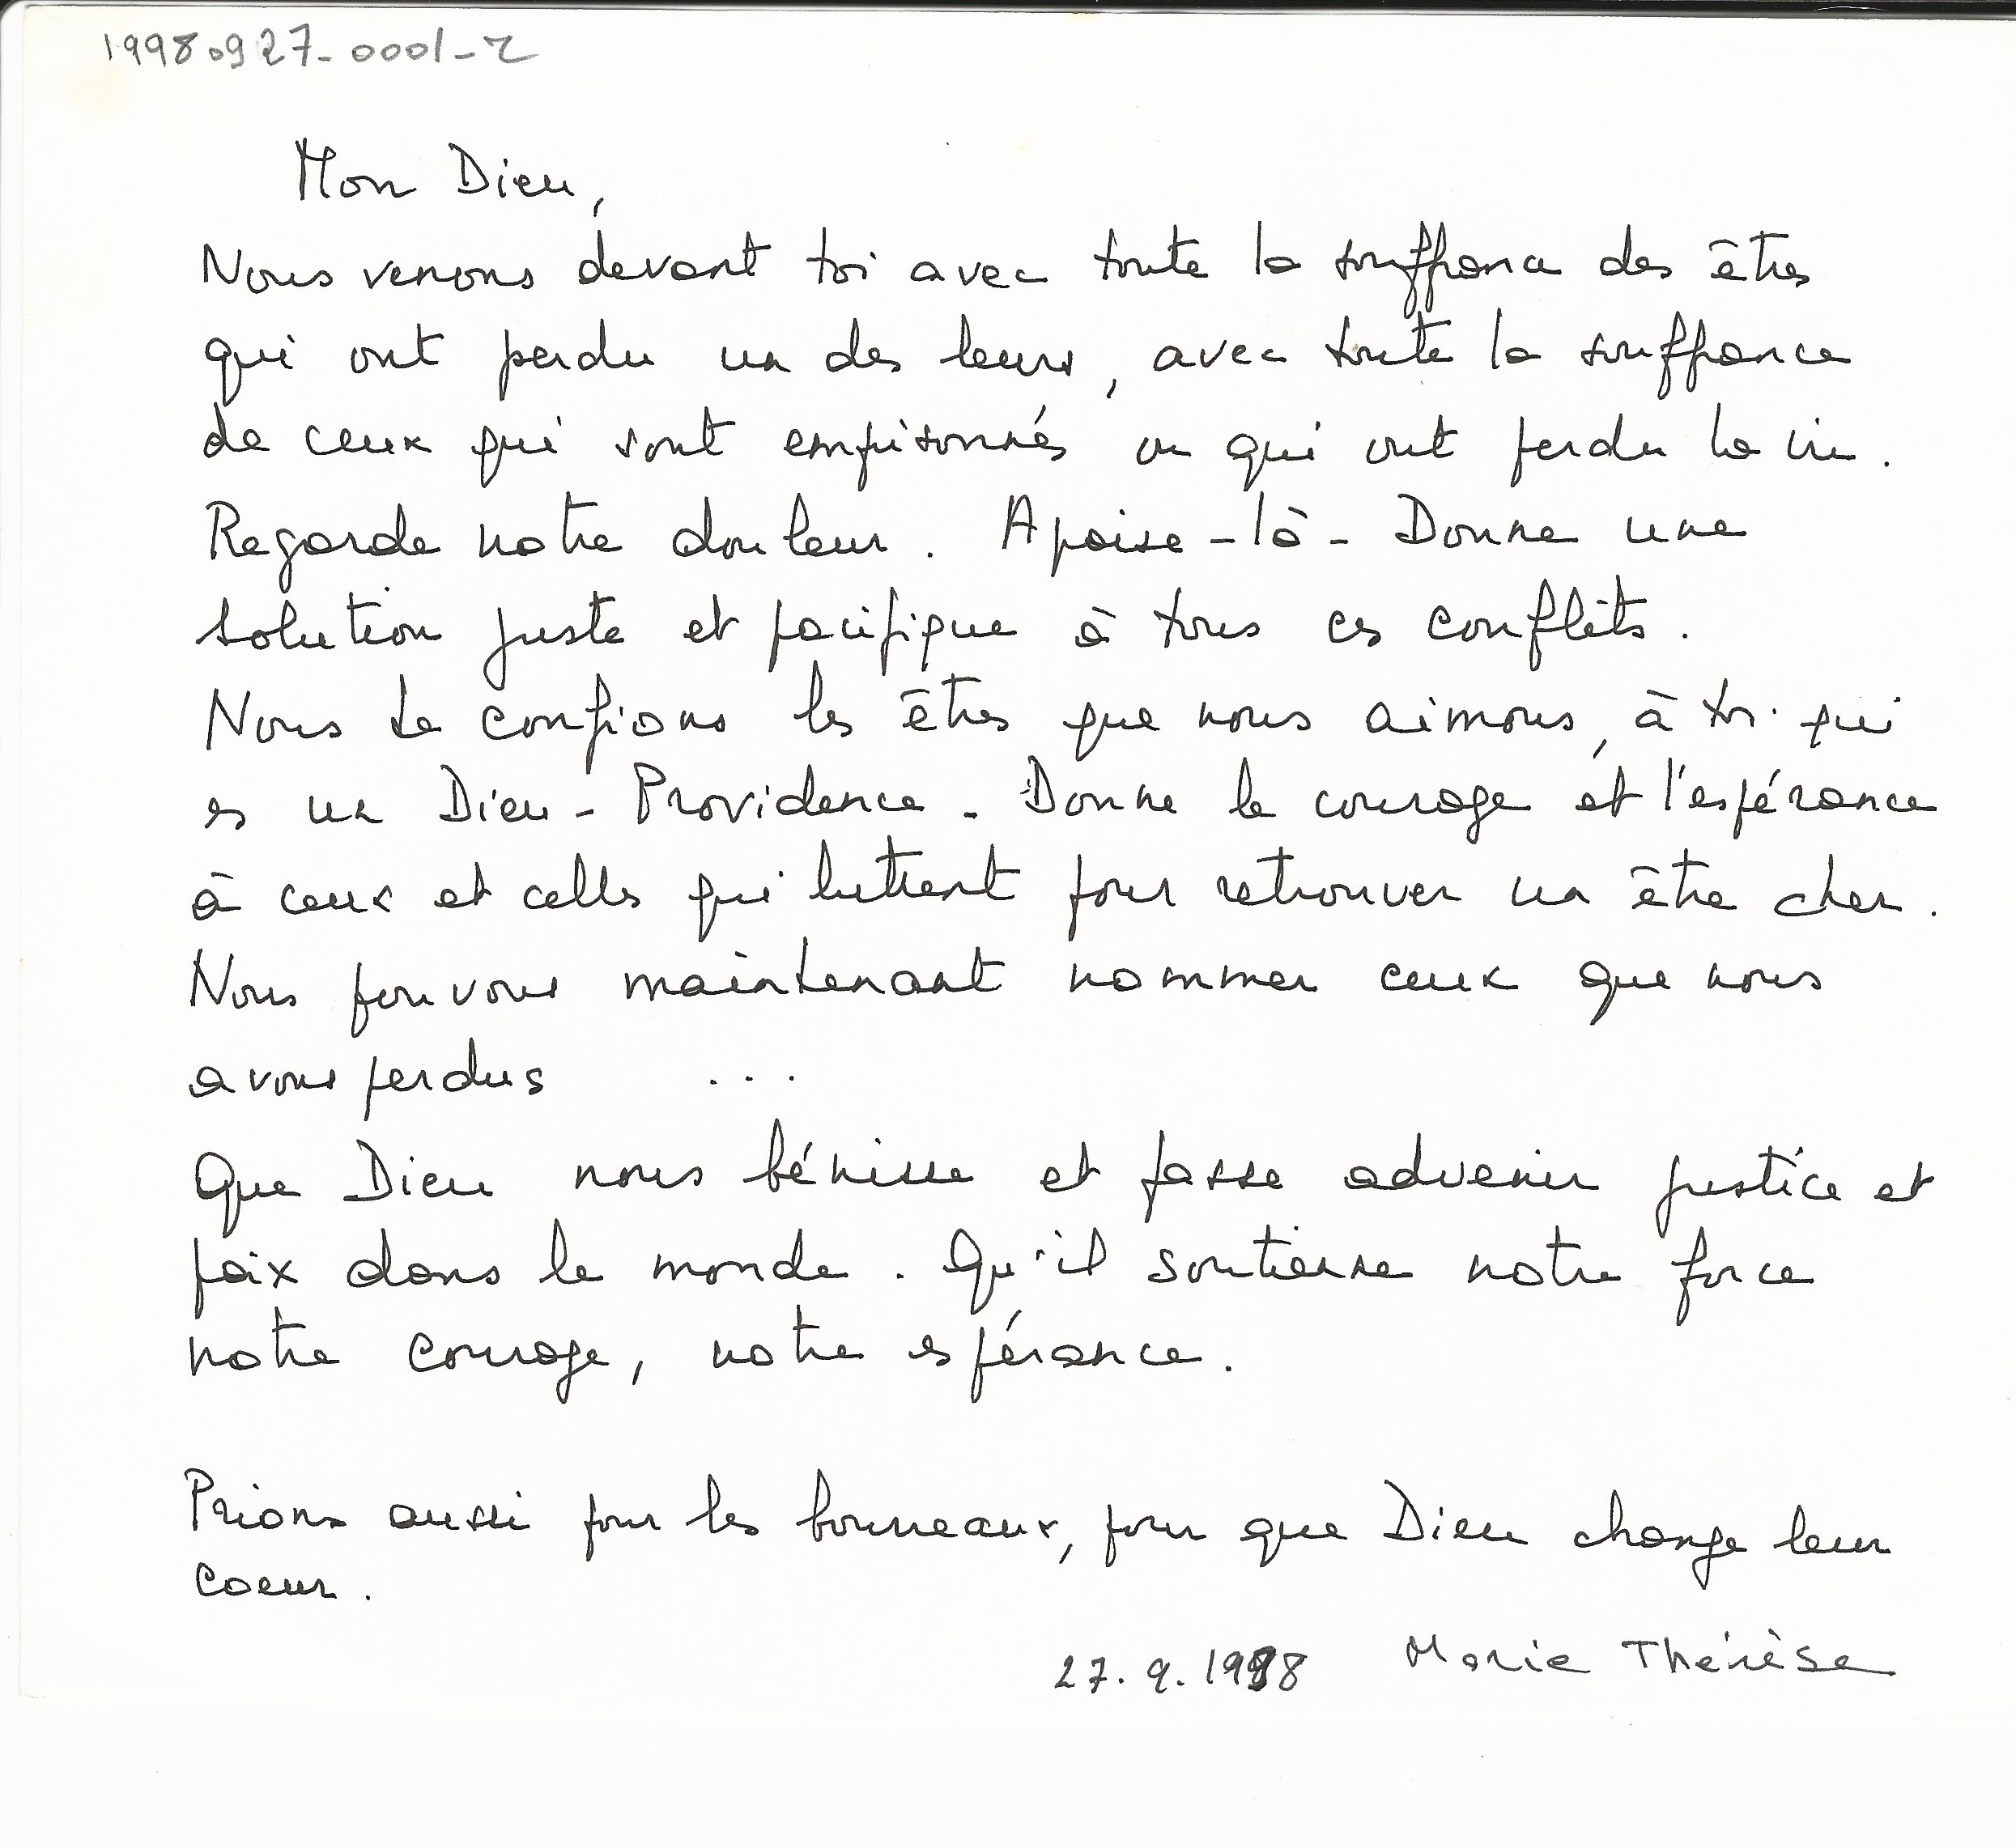 19980927-0001-r
Mon Dieu,
Nous venons devant toi avec toute la souffrance des êtres
qui ont perdu un des leurs, avec toute la souffrance
de ceux qui sont emprisonnés ou qui ont perdu la vie.
Regarde notre douleur. Apaise-là - Donne une
solution juste et pacifique à tous ces conflits.
Nous te confions les êtres que nous aimons, à toi qui
es un Dieu-Providence. Donne le courage et l'espérance
à ceux et celles qui luttent pour retrouver un être cher.
Nous pouvons maintenant nommer ceux que nous
avons perdus ...
Que Dieu nous bénisse et fasse advenir justice et
paix dans le monde. Qu'il soutienne notre force
notre courage, notre espérance.
Prions aussi pour les bourreaux, pour que Dieu change leur
coeur.
27.9.1998 Marie Thérèse